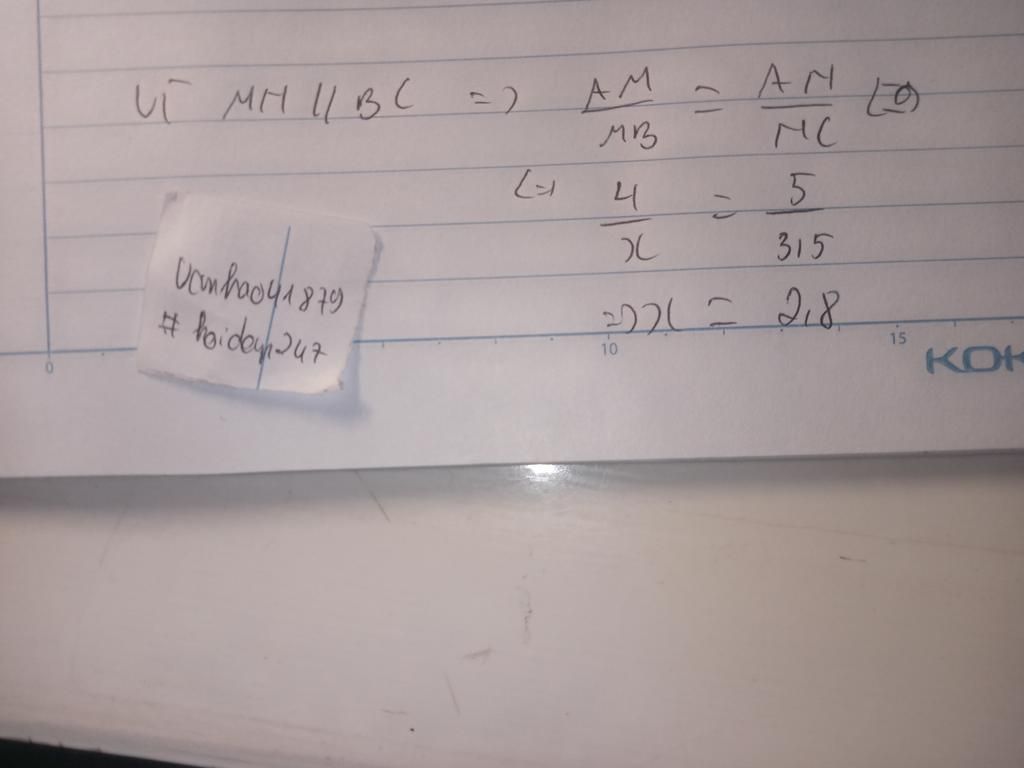 Vì MN // BC => AM/MB = AN/NC
<=> 4/x = 5/3,5
=> x = 2,8
vanhao041879
# hoidap247
0 10 15
KOK